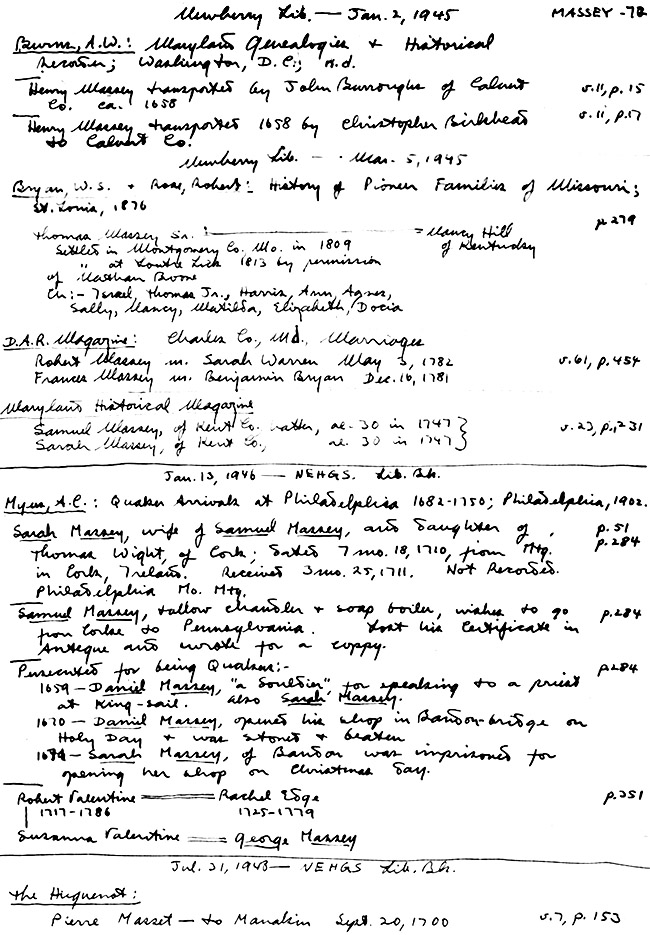 Newberry Lib. — Jan. 2, 1945 MASSEY - 78
Burns, A.W.: Maryland Genealogies & Historical
Recorder; Washington, D.C.; n.d.
Henry Massey transported by John Burroughs of Calvert v.11, p.15
Co. ca. 1658
Henry Massey transported 1658 by Christopher Birkhead v.11, p.17
to Calvert Co.
Newberry Lib. — Mar. 5, 1945
Bryan, W.S. & Rose, Robert: History of Pioneer Families of Missouri;
St. Louis, 1876
Thomas Massey Sr. = Nancy Hill p 279
Settled in Montgomery Co. Mo. in 1809 of Kentucky
" at Loutre Lick 1813 by permission
of Nathan Boone
Ch:- Israel, Thomas Jr., Harris, Ann, Agnes,
Sally, Nancy, Matilda, Elizabeth, Docia
D.A.R. Magazine: Charles Co., Md., Marriages
Robert Massey m. Sarah Warren May 3, 1782 v.61, p.454
Frances Massey m. Benjamin Bryan Dec. 16, 1781
Maryland Historical Magazine
Samuel Massey, of Kent Co. hatter, ae. 30 in 1747 } v.23, p.231
Sarah Massey, of Kent Co., ae. 30 in 1747 }
Jan. 13, 1946 — NEHGS. Lib. Bk.
Myers, A.C.: Quaker Arrivals at Philadelphia 1682-1750; Philadelphia, 1902.
Sarah Massey, wife of Samuel Massey, and daughter of p.51
Thomas Wight, of Cork: Dated 7 mo. 18, 1710, from Mtg. p.284
in Cork, Ireland. Received 3 mo. 25, 1711. Not Recorded.
Philadelphia Mo. Mtg.
Samuel Massey, tallow chandler & soap boiler, wishes to go p.284
from Corke to Pennsylvania. Lost his Certificate in
Anteque and wrote for a coppy.
Persecuted for being Quakers:- p284
1659 — Daniel Massey, "a Souldier", for speaking to a priest
at King-sail. also Sarah Massey.
1670 — Daniel Massey, opened his shop in Bandon-bridge on
Holy Day & was stoned & beaten
— Sarah Massey, of Bandon was imprisoned for
opening her shop on Christmas day.
Robert Valentine = Rachel Edge p.251
1717-1786 1725-1779
Susanna Valentine = George Massey
Jul. 31, — NEHGS Lib. Bk.
The Huguenot:
Pierre Masset — to Manakin Sept. 20, 1700 v.7, p.153